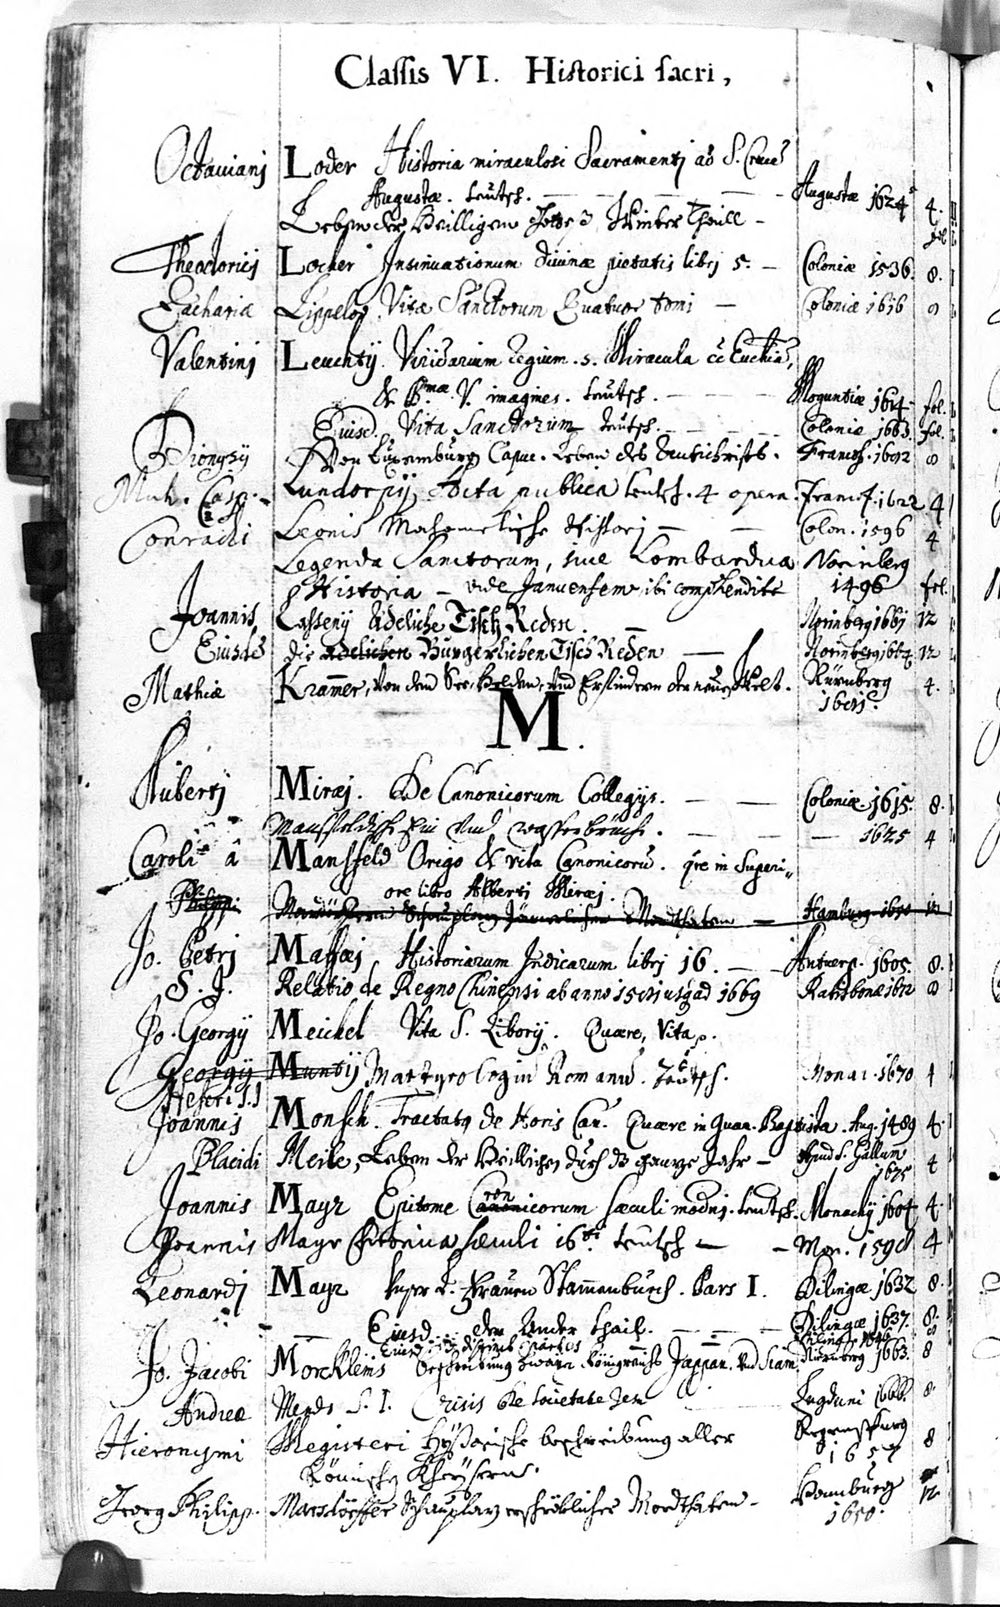 Classis VI. Historici sacri,
Octauianj Loder Historia miraculosi Sacramentj ad S. Cruce
Augustæ. teutsch. — — — — Augustæ 1624 4.
Leben der Heilligen Winter theill —
Theodoricj Locher Insinuationum diuinæ pietatis librj 5. — Coloniæ 1536. 8.
Zachariæ Lippeloy Vitæ Sanctorum Quatuor tomi — Coloniæ 1616 8
Valentinj Leuchtij. Viridarium Regium. s. Miracula
& B.mæ V. imagines. teutsch. — — — Moguntiæ 1614. fol.
Eiusd. Vita Sanctorum teutsch. — — — Coloniæ 1663. fol.
Dionysij Von Luxemburg Capuc. Leben des Antichrists. Francf. 1692 8
Mich. Casp. Lundorpij Acta publica teutsch. 4 opera. Francf. 1622 4
Conradi Leonis Mahometische Histori — — Colon. 1596 4
Legenda Sanctorum, siue Lombardica Norinberg
Historia — vide Januensem ibi comprehendite 1496 fol.
Joannis Lasseny Adeliche Tisch Reden. — Norinberg 1661 12
Eiusdē die adelichen Bürgerlichen Tisch Reden — Norinberg 1662 12
Mathiæ Kramer, Von den See, Helden, und Erfindern der neuen Welt. Nürnberg 4.
1681.
M.
Aubertj Miræj. De Canonicorum Collegijs. — — Coloniæ. 1615. 8.
Mansfeldische — — — 1625 4
Caroli â Mansfeld Origo & vita Canonicorū. qre in Superi„
ore libro Alberti Miræj.
Philippi Schauplatz Jämerlicher Mordthaten — Hamburg 1650 12
Jo. Petrj Maffæj Historiarum Indicarum librj 16. — — Antwerp. 1605. 8.
S. J. Relatio de Regno Chinensi ab anno 1581 usq ad 1669 Ratisbonæ 1672 8
Jo. Georgij Meichel Vita S. Liborij. Quære, Vita.
Georgij Muntij Martyrologiū Romanū. Teutsch. Monac. 1670 4
S.J
Joannis Monsch. Tractatq de Horis Can. Quære in Quar. Baptista. Aug. 1489 4.
Placidi Meile, Leben der Heilligen durch dz gantze Jahr — Apud S. Gallum
1675 4
Joannis Mayr Epitome Canonicorum sæculi modnj. teutsch. Monachij 1604 4.
ron
Joannis Mayr Chronica sæculi 16ti teutsch — — Mon. 1598 4
Leonardj Mayr Unser L. Frauen Stammenbuech. Pars I. Dilingæ 1632 8.
— Eiusd. — der Ander thail. — — — Dilingæ 1637. 8.
Eiusd.
Jo. Jacobi Morckleins Beschreibung zwayer Königreichs Jappan. und Siam Nürnberg 1663. 8
Andreæ Mendo S. I. Crisis de Societate Jesu Lugduni 1666. 8.
Hieronymi Megiseri Hystorische beschreibung aller Regenspurg
Römischer Kheysern. 1657 8
Georg Philipp. Harsdörffer Schauplatz erschröklicher Mordthaten — Hamburg
1650. 12